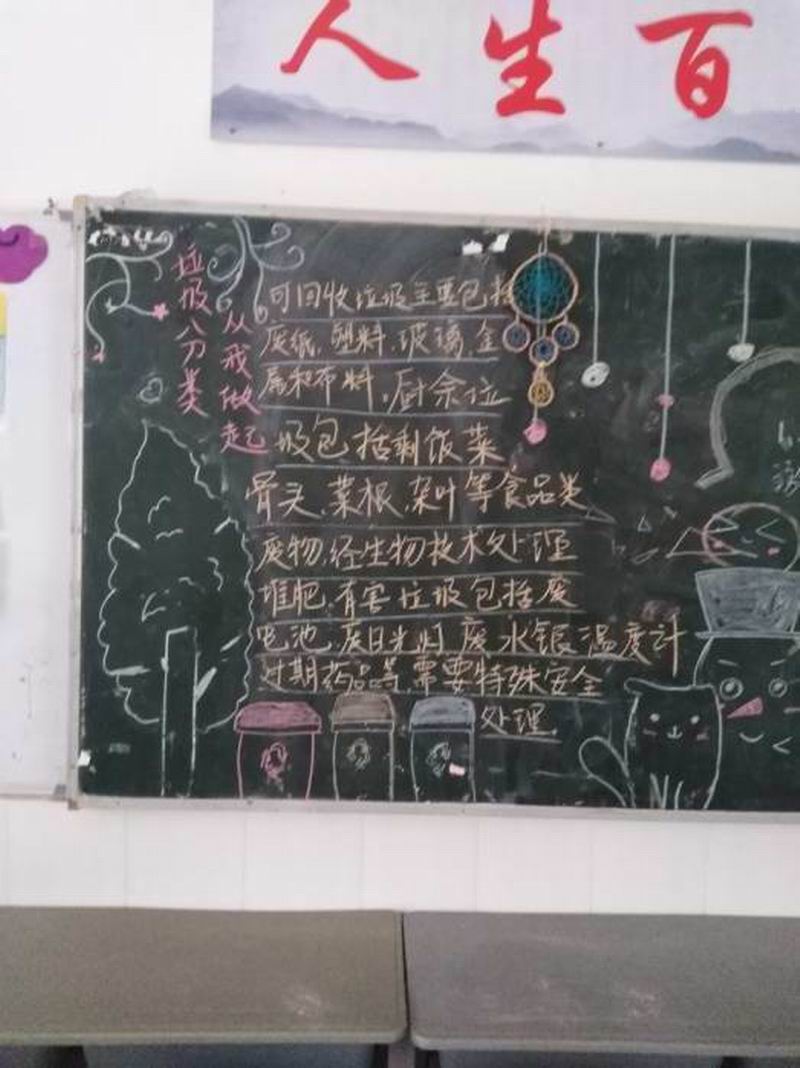 人生百
垃圾分类
从我做起
可回收垃圾主要包括
废纸、塑料、玻璃、金
属和布料。厨余垃
圾包括剩饭菜
骨头、菜根、杂叶等食品类
废物,经生物技术处理
堆肥。有害垃圾包括废
电池、废日光灯废水银温度计
过期药品等,需要特殊安全
处理。